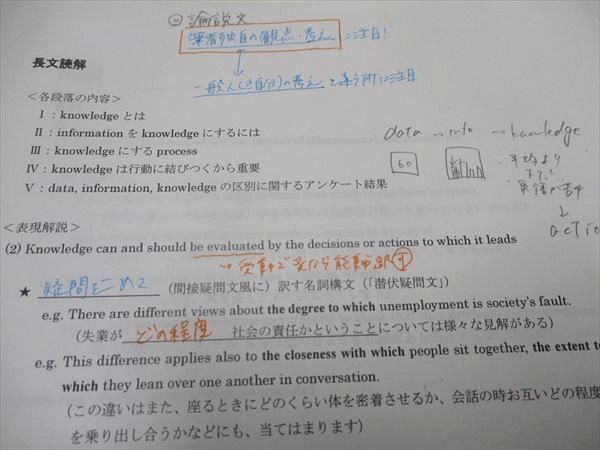 論説文
筆者独自の観点・考え に注目!
一般人(≒自分)の考え と異なる所に注目
長文読解
<各段落の内容>
Ⅰ:knowledge とは
Ⅱ:information を knowledge にするには
Ⅲ:knowledge にする process
Ⅳ:knowledge は行動に結びつくから重要
Ⅴ:data, information, knowledge の区別に関するアンケート結果
data → info → knowledge
60
・平均より
下だ…
・英語が苦手
↓
actio
<表現解説>
(2) Knowledge can and should be evaluated by the decisions or actions to which it leads
→ 受動で訳すな 能動訳
★ 疑問をこめて (間接疑問文風に) 訳す名詞構文(「潜伏疑問文」)
e.g. There are different views about the degree to which unemployment is society's fault.
(失業が どの程度 社会の責任かということについては様々な見解がある)
e.g. This difference applies also to the closeness with which people sit together, the extent to
which they lean over one another in conversation.
(この違いはまた、座るときにどのくらい体を密着させるか、会話の時お互いどの程度
を乗り出し合うかなどにも、当てはまります)